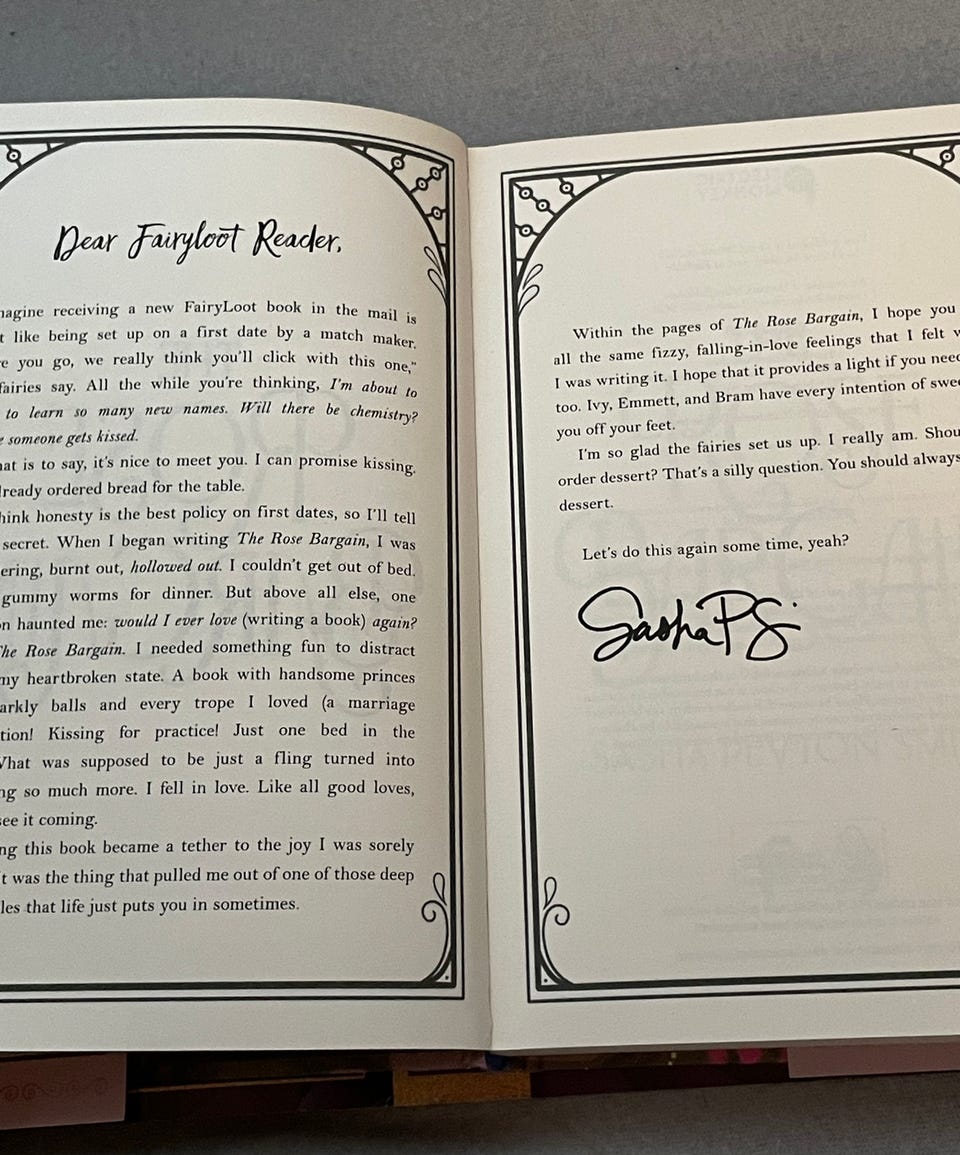 Dear Fairyloot Reader,
receiving a new FairyLoot book in the mail is
like being set up on a first date by a match maker.
you go, we really think you'll click with this one,"
fairies say. All the while you're thinking, I'm about to
to learn so many new names. Will there be chemistry?
someone gets kissed.
is to say, it's nice to meet you. I can promise kissing.
ordered bread for the table.
honesty is the best policy on first dates, so I'll tell
secret. When I began writing The Rose Bargain, I was
burnt out, hollowed out. I couldn't get out of bed.
gummy worms for dinner. But above all else, one
haunted me: would I ever love (writing a book) again?
The Rose Bargain. I needed something fun to distract
my heartbroken state. A book with handsome princes
balls and every trope I loved (a marriage
Kissing for practice! Just one bed in the
What was supposed to be just a fling turned into
so much more. I fell in love. Like all good loves,
see it coming.
this book became a tether to the joy I was sorely
was the thing that pulled me out of one of those deep
that life just puts you in sometimes.
Within the pages of The Rose Bargain, I hope you
all the same fizzy, falling-in-love feelings that I felt
I was writing it. I hope that it provides a light if you
too. Ivy, Emmett, and Bram have every intention of
you off your feet.
I'm so glad the fairies set us up. I really am.
order dessert? That's a silly question. You should always
dessert.
Let's do this again some time, yeah?
SashaPS